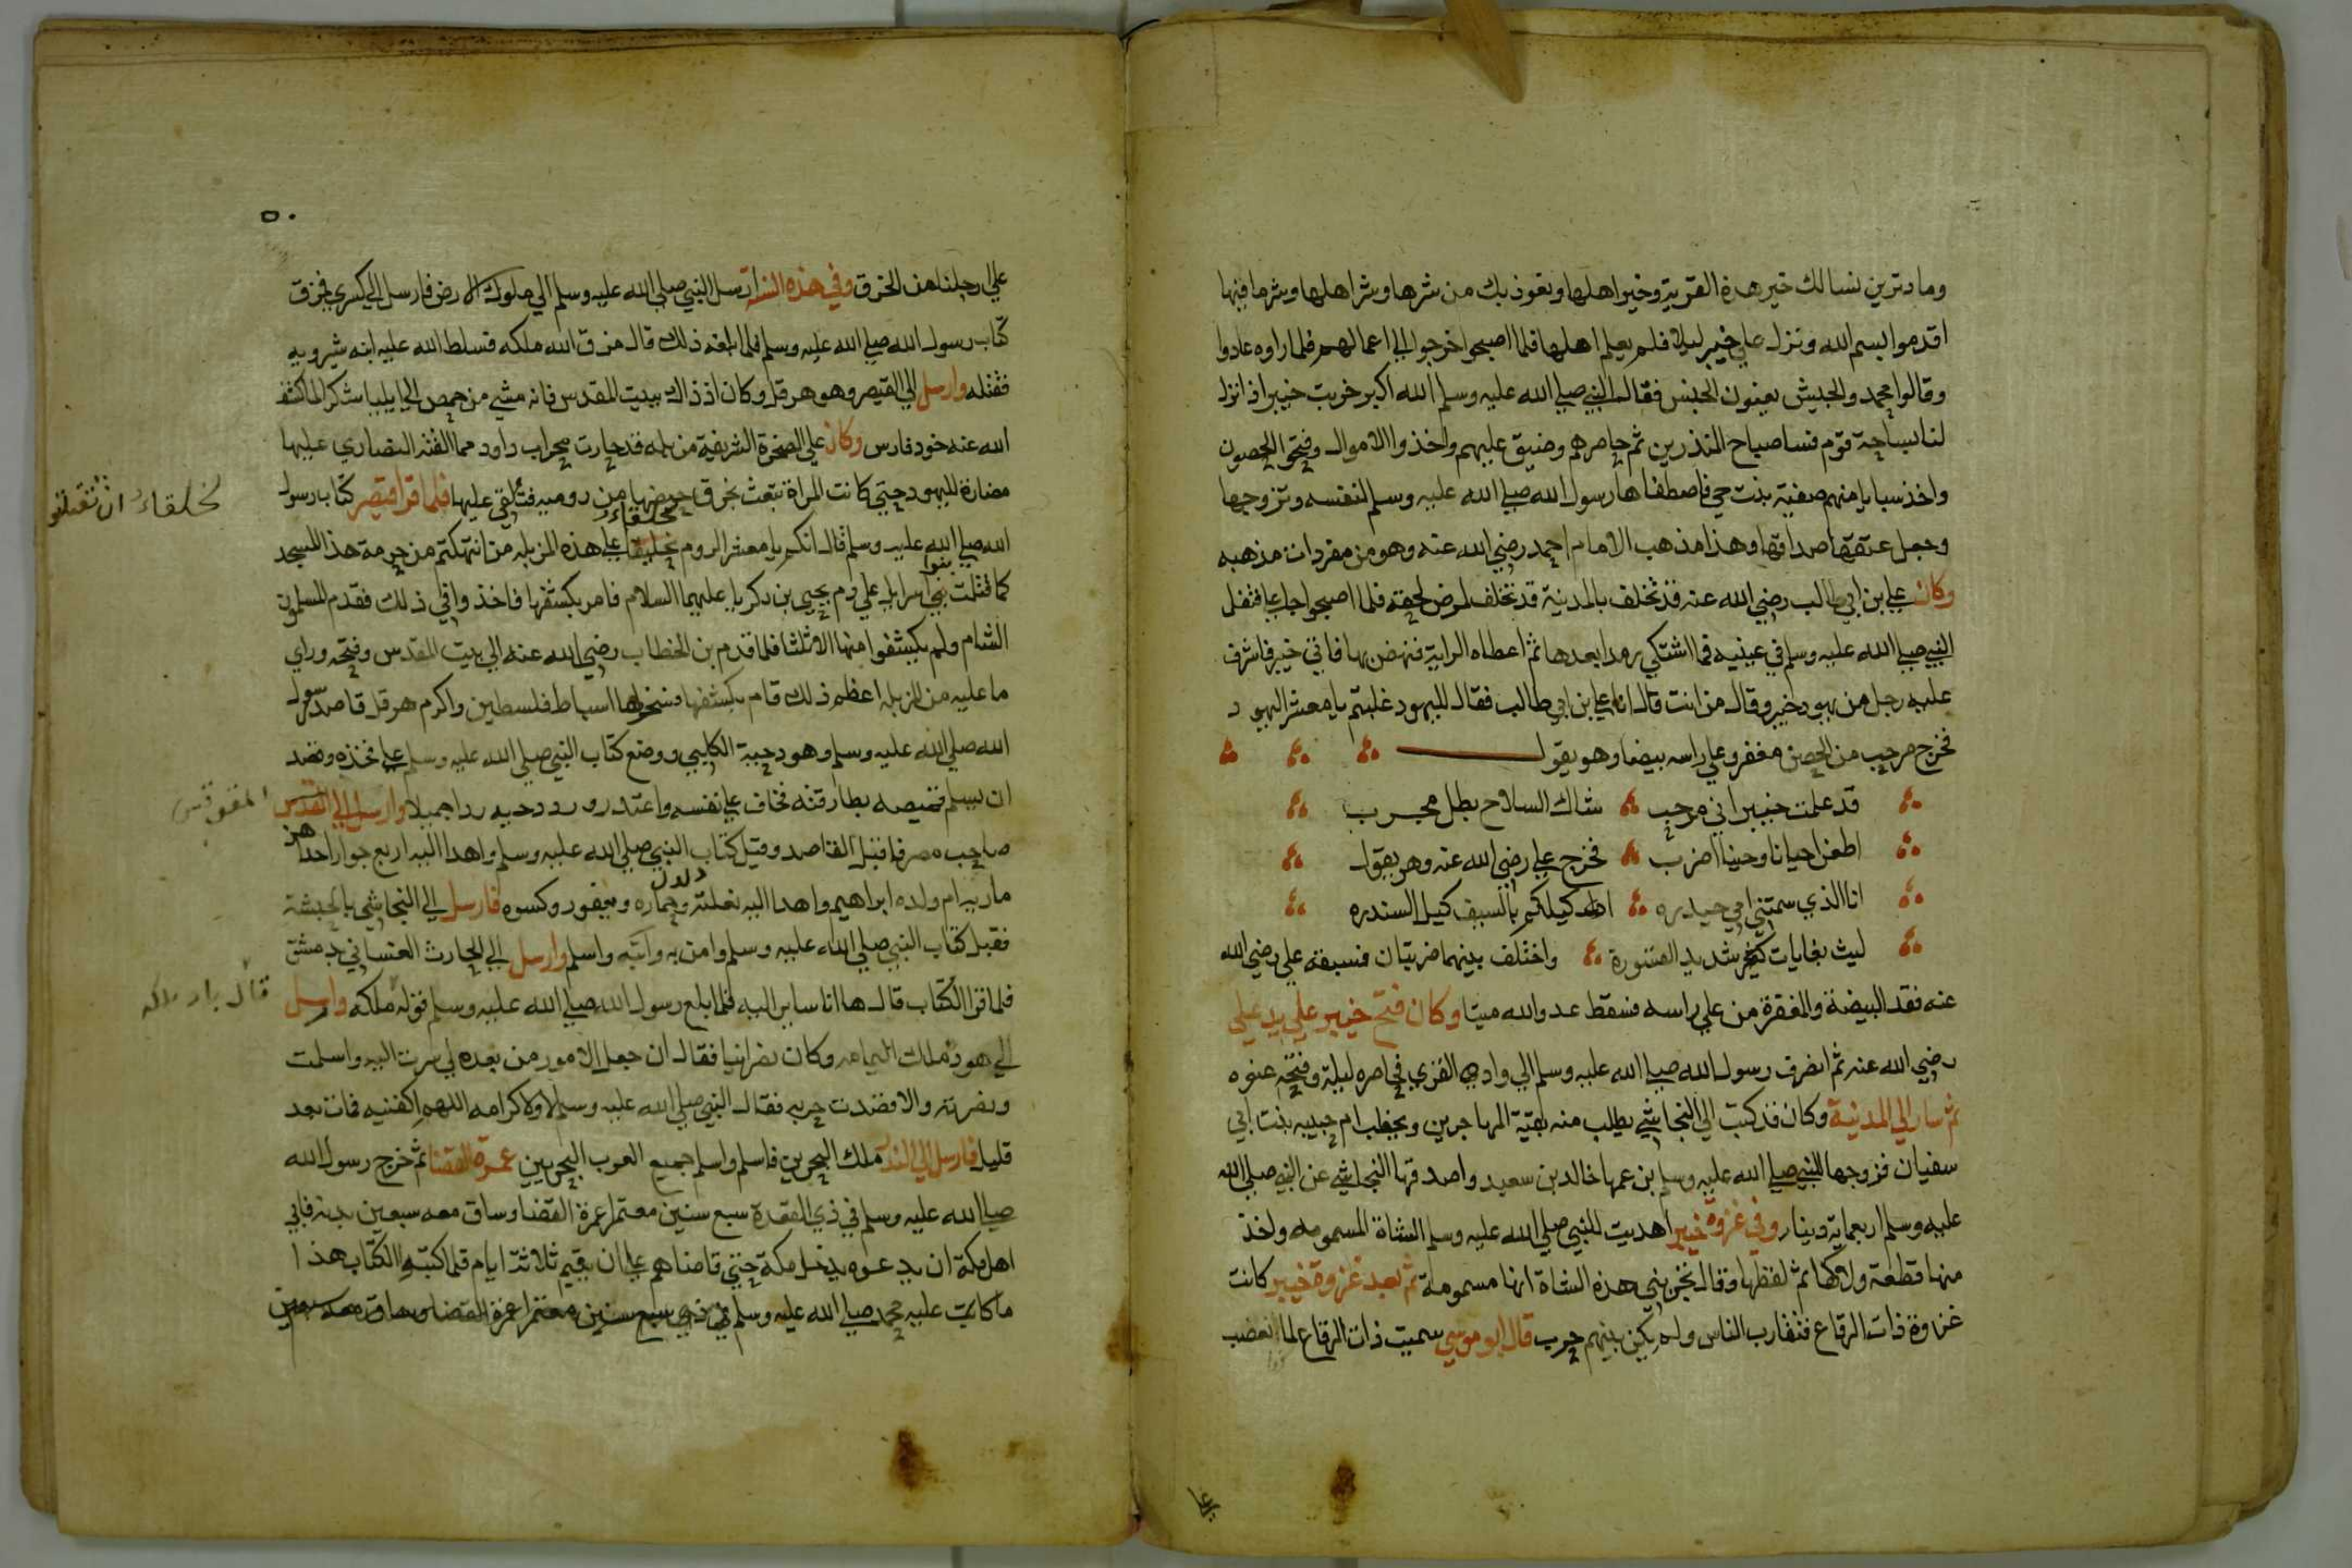 وما درين نسالك خير هذه القرية وخير اهلها ونعوذ بك من شرها وشر اهلها وشر ما فيها
اقدموا بسم الله ونزل على خيبر ليلا فلم يعلم اهلها فلما اصبحوا خرجوا الى اعمالهم فلما راوه عادوا
وقالوا محمد والجيش يعنون الخميس فقال النبي صلي الله عليه وسلم الله اكبر خربت خيبر اذا نزلـ
لنا بساحة قوم فسا صباح المنذرين ثم حاصرهم وضيق عليهم واخذوا الاموال وفتحوا الحصون
واخذ سبايا منهم صفية بنت حي فاصطفاها رسول الله صلي الله عليه وسلم لنفسه وتزوجها
وجعل عتقها صداقها وهذا مذهب الامام احمد رضي الله عنه وهو من مفردات مذهبه
وكان علي بن ابي طالب رضي الله عنه قد تخلف بالمدينة قد تخلف لمرض لحقه فلما اصبحوا جا علي فتفل
النبي صلي الله عليه وسلم في عينيه فما اشتكي رمدا بعدها ثم اعطاه الراية فنهض بها فاتي خيبر فاشرف
عليه رجل من يهود خيبر وقال من انت قال انا علي بن ابي طالب فقال لليهود غلبتم يا معشر اليهود
فخرج مرحب من الحصن مغفر وعلي راسه بيضا وهو يقول
قد علمت خيبر اني مرحب شاك السلاح بطل مجرب
اطعن احيانا وحينا اضرب فخرج علي رضي الله عنه وهو يقول
انا الذي سمتني امي حيدره اكيلكم بالسيف كيل السندره
ليث بغابات شديد القسورة واختلف بينهما ضربتان فسبقه علي رضي الله
عنه فقد البيضة والمغفرة من علي راسه فسقط عدو الله ميتا وكان فتح خيبر علي يد علي
رضي الله عنه ثم انصرف رسول الله صلي الله عليه وسلم الي وادي القري فحاصره ليلة وفتحه عنوه
ثم سار الي المدينة وكان قد كتب الي النجاشي يطلب منه بقية المهاجرين ويخطب ام حبيبه بنت ابي
سفيان فزوجها للنبي صلي الله عليه وسلم بن عمها خالد بن سعيد واصدقها النجاشي عن النبي صلي الله
عليه وسلم اربعماية دينار وفي غزوة خيبر اهديت للنبي صلي الله عليه وسلم الشاة المسمومه واخذ
منها قطعة ولاكها ثم لفظها وقال تخبرني هذه الشاة انها مسمومة ثم بعد غزوة خيبر كانت
غزاوة ذات الرقاع فتقارب الناس ولم يكن بينهم حرب قال ابو موسي سميت ذات الرقاع لما نعصب
٥٠
علي ارجلنا من الخرق وفي هذه السنة ارسل النبي صلي الله عليه وسلم الي ملوك الارض فارسل الي كسري فمزق
كتاب رسول الله صلي الله عليه وسلم فلما بلغه ذلك قال مزق الله ملكه فسلط الله عليه ابنه شيرويه
فقتله وارسل الي القيصر وهو هرقل وكان اذ ذاك ببيت المقدس فانه مشي من حمص الي ايليا شكرا لما كشف
الله عنه جنود فارس وكان علي الصخرة الشريفة مزبلة قد حازت محراب داود مما القته النصاري عليها
مضارة لليهود حتي كانت المراة تبعث بخرق حيضها من روميه فتلقي عليها فلما قرا قيصر كتاب رسول
الله صلي الله عليه وسلم قال انكم يا معشر الروم لخلقاء علي هذه المزبلة من انتهكتم من حرمة هذا المسجد
كما قتلت بنوا اسرايل علي دم يحيي بن زكريا عليهما السلام فامر بكشفها فاخذوا في ذلك فقدم المسلمون
الشام ولم يكشفوا منها الا ثلثا فلما قدم بن الخطاب رضي الله عنه الي بيت المقدس وفتحه وراي
ما عليه من المزبلة اعظم ذلك فامر بكشفها فسخر لها انباط فلسطين واكرم هرقل قاصد رسول
الله صلي الله عليه وسلم وهو دحية الكلبي ووضع كتاب النبي صلي الله عليه وسلم علي فخذه وقصد
ان يسلم فمنعه بطارقته فخاف علي نفسه واعتذر ورد دحيه ردا جميلا وارسل الي المقدس
صاحب مصر فاقبل القاصد وقبل كتاب النبي صلي الله عليه وسلم واهدا اليه اربع جوار احداهن
ماريه ام ولده ابراهيم واهدا اليه بغلته دلدل وحماره وبعفور وكسوه فارسل الي النجاشي بالحبشة
فقبل كتاب النبي صلي الله عليه وسلم وامن به واتبعه واسلم وارسل الي الحارث الغساني بدمشق
فلما قرا الكتاب قال ها انا ساير اليه فلما بلغ رسول الله صلي الله عليه وسلم قوله ملكه وارسل
الي هوذه ملك اليمامه وكان نصرانيا فقال ان جعل الامور من بعده لي سرت اليه واسلمت
ونصرته والا قصدت حربه فقال النبي صلي الله عليه وسلم لا ولا كرامه اللهم اكفنيه فمات بعد
قليل فارسل الي المنذر ملك البحرين فاسلم واسلم جميع العرب البحريين عمرة القضا ثم خرج رسول الله
صلي الله عليه وسلم في ذي القعدة سبع سنين معتمرا عمرة القضا وساق معه سبعين بدنه فابي
اهل مكة ان يدعوه يدخل مكة حتي قاضاهم علي ان يقيم ثلاثة ايام فلما كتبوا الكتاب هذا
ما كاتب عليه محمد صلي الله عليه وسلم في ذي سبع سنين معتمرا عمرة القضا وساق معه سبعين
لخلقاء ان تقتلو
المقوقس
قال باد ملكه